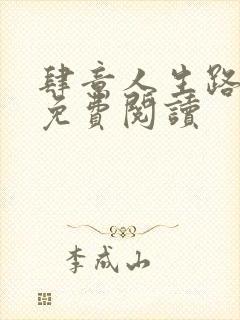 肆意人生路
免費閱讀
李成山